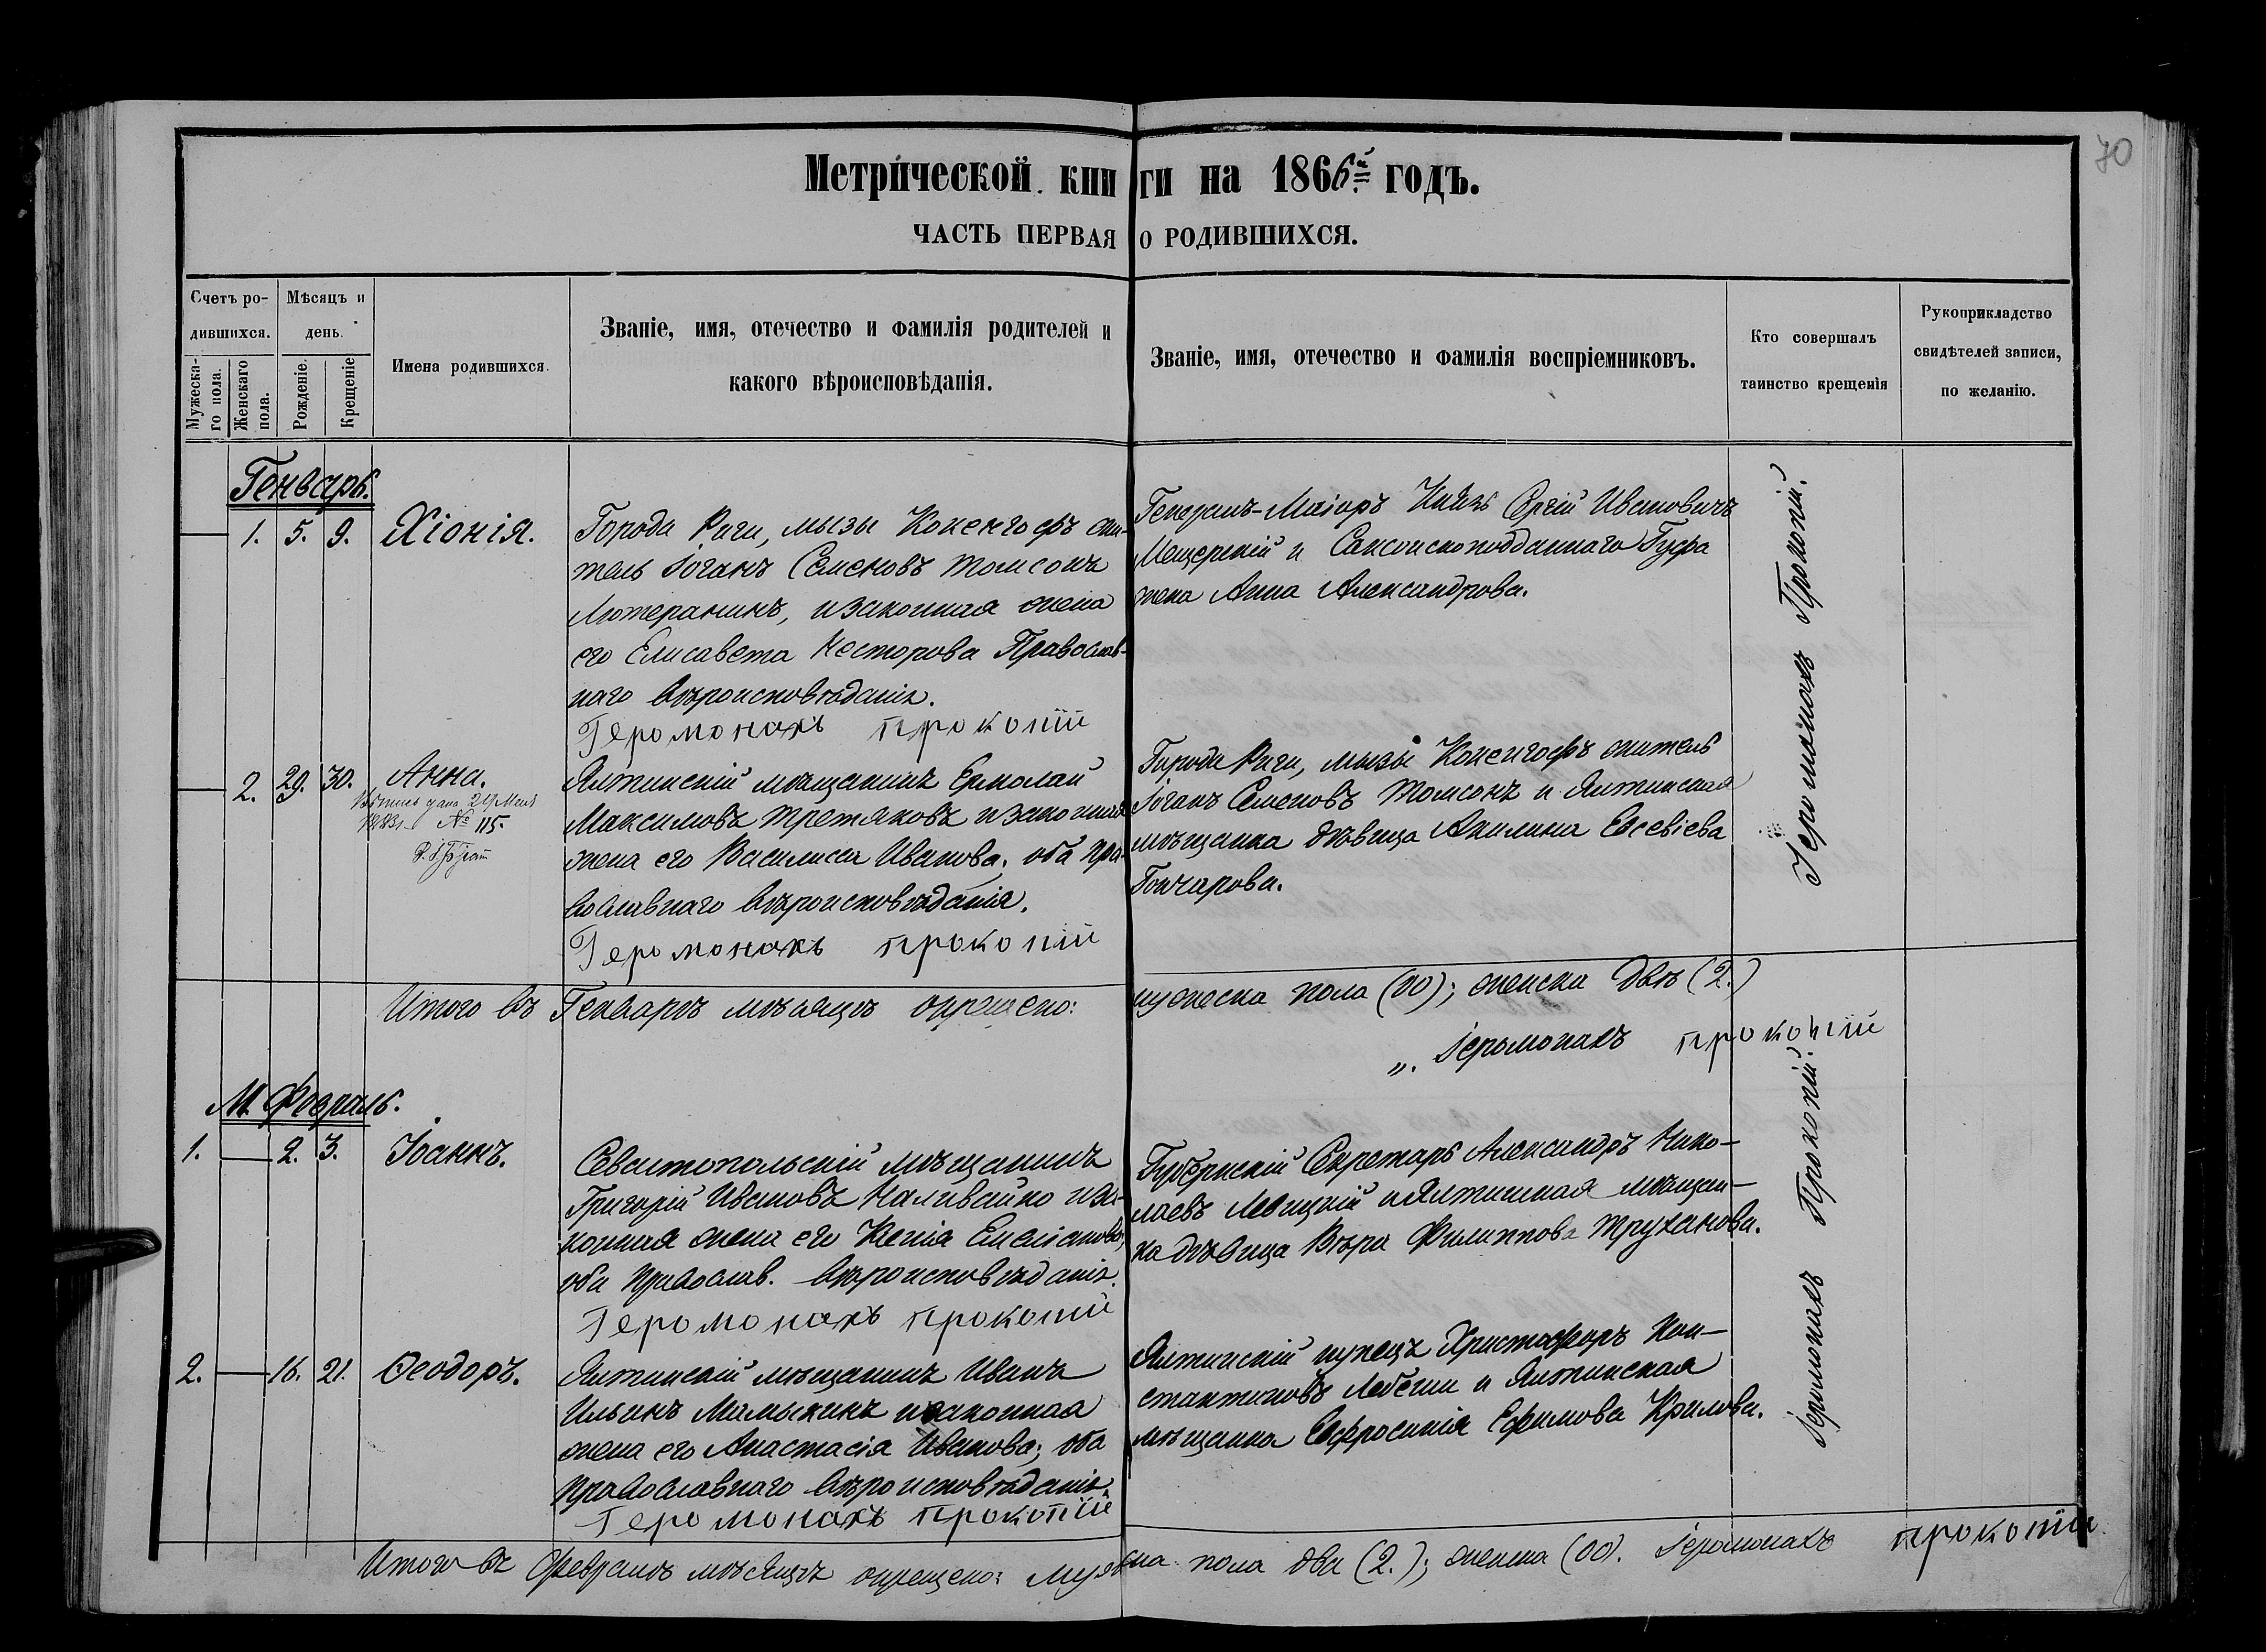 70
Метрической книги на 1866й годъ.
ЧАСТЬ ПЕРВАЯ О РОДИВШИХСЯ.
Счетъ ро-
дившихся.
Мужеска-
го пола.
Женскаго
пола.
Мѣсяцъ и
день.
Рожденіе.
Крещеніе
Имена родившихся.
Званіе, имя, отечество и фамилія родителей и
какого вѣроисповѣданія.
Званіе, имя, отечество и фамилія воспріемниковъ.
Кто совершалъ
таинство крещенія
Рукоприкладство
свидѣтелей записи,
по желанію.
Генварь.
1. 5. 9. Хіонія.
Города Риги, мызы Кокенгофъ жи-
тель Іоганъ Семеновъ Томсонъ
Лютеранинъ, и законная жена
его Елисавета Несторова Православ-
наго вѣроисповѣданія.
Іеромонахъ прокопій
Генералъ-Маіоръ Князь Сергій Ивановичъ
Мещерскій и Саксонскоподданнаго Гуфа
жена Анна Александрова.
Іеромонахъ Прокопій.
2. 29. 30. Анна.
№ 115.
Ялтинскій мѣщанинъ Ермолай
Максимовъ Третяковъ и законная
жена его Василиса Иванова, оба пра-
вославнаго вѣроисповѣданія.
Іеромонахъ прокопій
Города Риги, мызы Кокенгофъ житель
Іоганъ Семеновъ Томсонъ и Ялтинская
мѣщанка дѣвица Акилина Евсевіева
Гончарова.
Итого въ Генварѣ мѣсяцѣ окрещено: мужеска пола (00); женска двѣ (2.)
„. Іеромонахъ прокопій
М. Февраль.
1. 2. 3. Іоаннъ.
Севастопольскій мѣщанинъ
Григорій Ивановъ Наливайко и за-
конная жена его Ксенія Емеліанова,
оба православ. вѣроисповѣданія.
Іеромонахъ прокопій
Губернскій Секретарь Александръ Нико-
лаевъ Левицкій и Ялтинская мѣщан-
ка дѣвица Вѣра Филиппова Труханова.
Іеромонахъ Прокопій.
2. 16. 21. Ѳеодоръ.
Ялтинскій мѣщанинъ Иванъ
Ильинъ Мамыкинъ и законная
жена его Анастасія Иванова; оба
православнаго вѣроисповѣданія.
Іеромонахъ прокопій
Ялтинскій купецъ Христофоръ Кон-
стантиновъ и Ялтинская
мѣщанка Евфросинія Ефимова Крилова.
Итого въ Февралѣ мѣсяцѣ окрещено: мужеска пола два (2.); женска (00). Іеромонахъ прокопій